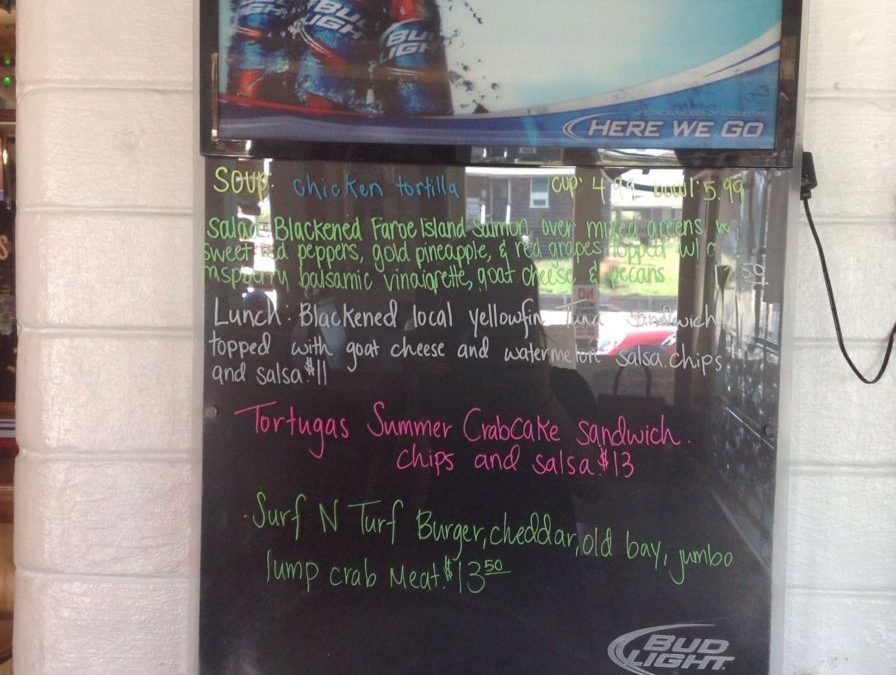 LIGHT
BUD
LIGHT
BUD
LIGHT
HERE WE GO
Soup: chicken tortilla cup: 4.99 bowl: 5.99
Salad: Blackened Faroe Island Salmon, over mixed greens w/
sweet red peppers, gold pineapple, & red grapes topped w/ a
raspberry balsamic vinaigrette, goat cheese & pecans
Lunch: Blackened local yellowfin Tuna Sandwich
topped with goat cheese and watermelon salsa. chips
and salsa. $11
Tortugas Summer Crabcake Sandwich.
chips and salsa. $13
Surf N Turf Burger, cheddar, old bay, jumbo
lump crab Meat. $13 50
BUD
LIGHT